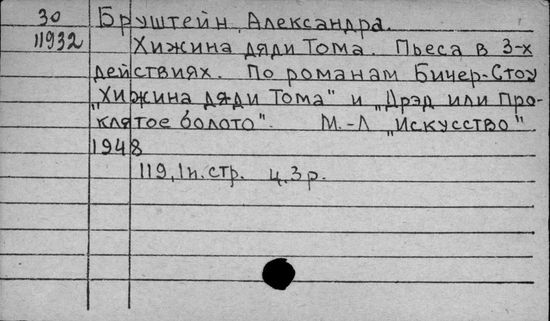 30 Бруштейн, Александра.
11932 Хижина дяди Тома. Пьеса в 3-х
действиях. По романам Бичер-Стоу
„Хижина дяди Тома" и „Дрэд или про-
клятое болото". М.-Л „Искусство"
1948
119,1п.стр. ц.3р.